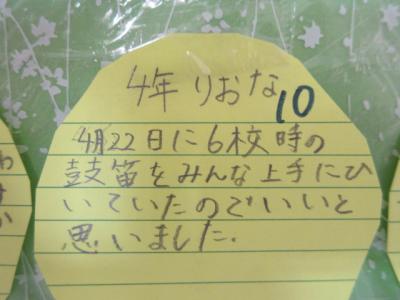 4年 りおな
10
4月22日に6校時の
鼓笛をみんな上手にひ
いていたのでいいと
思いました.